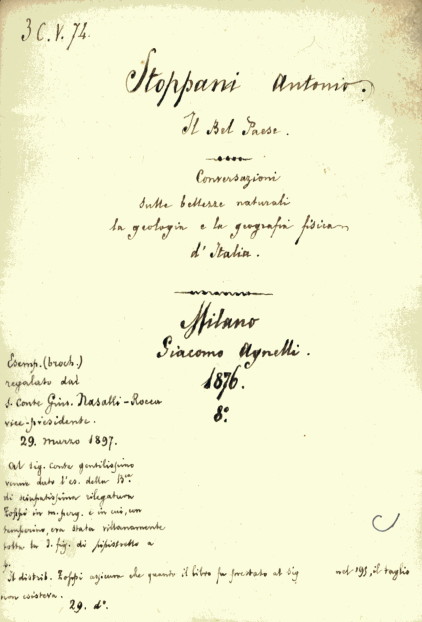 3 C. V. 74.
Stoppani Antonio.
Il Bel Paese.
Conversazioni
sulle bellezze naturali
la geologia e la geografia fisica
d'Italia.
Milano
Giacomo Agnelli.
1876.
8.º
Esemp. (broch.)
regalato dal
S. Conte Gius. Nasalli-Rocca
vice-presidente.
29. marzo 1897.
Al sig. conte gentilissimo
venne dato l'es. della
di rilegatura
Zoppi in m. perg. e in cui, un
temperino, era stata villanamente
tolta la I. fig. di pipistrello a
p.
Il distrib. Zoppi che quando il libro fu prestato al Sig nel il taglio
non esisteva.
29. dº.